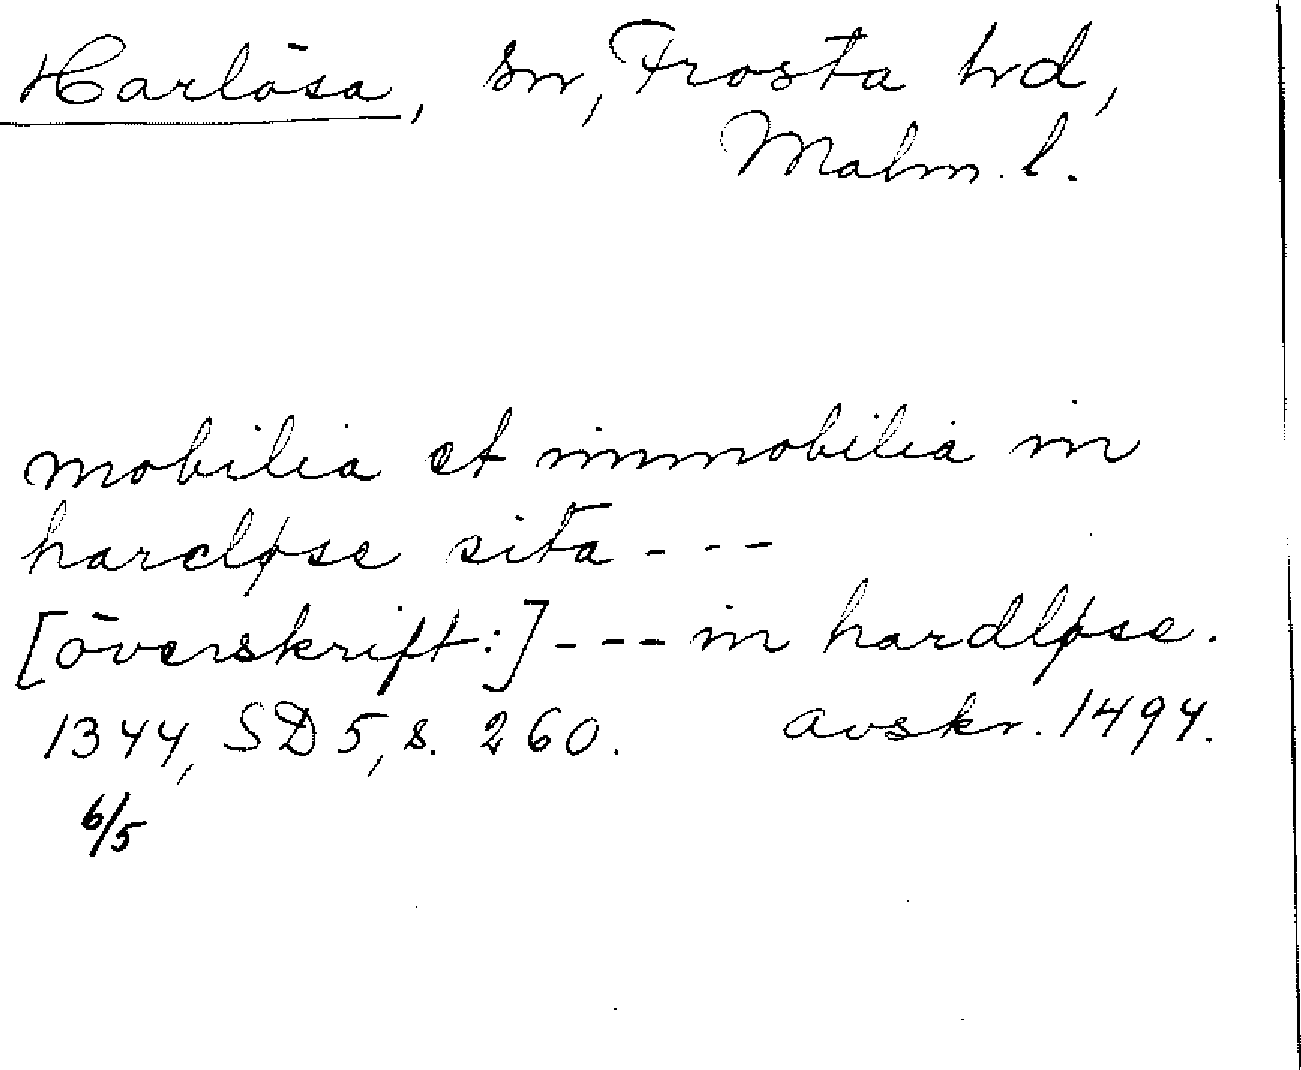 Harlösa, sn, Frosta hd,
Malm. l.
mobilia et immobilia in
harcløse sita ---
[överskrift:] --- in hardløse.
1344, SD 5, s. 260. avskr. 1494.
6/5